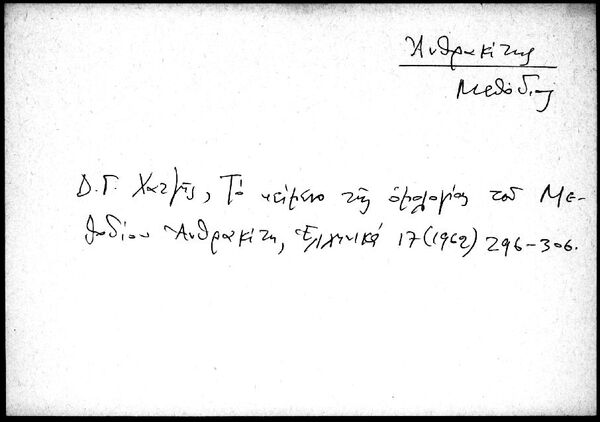 Ἀνθρακίτης
Μεθόδιος
Δ. Γ. Χατζῆς, Τό κείμενο τῆς ὁμολογίας τοῦ Με-
θοδίου Ἀνθρακίτη, Ἑλληνικά 17 (1962) 296-306.